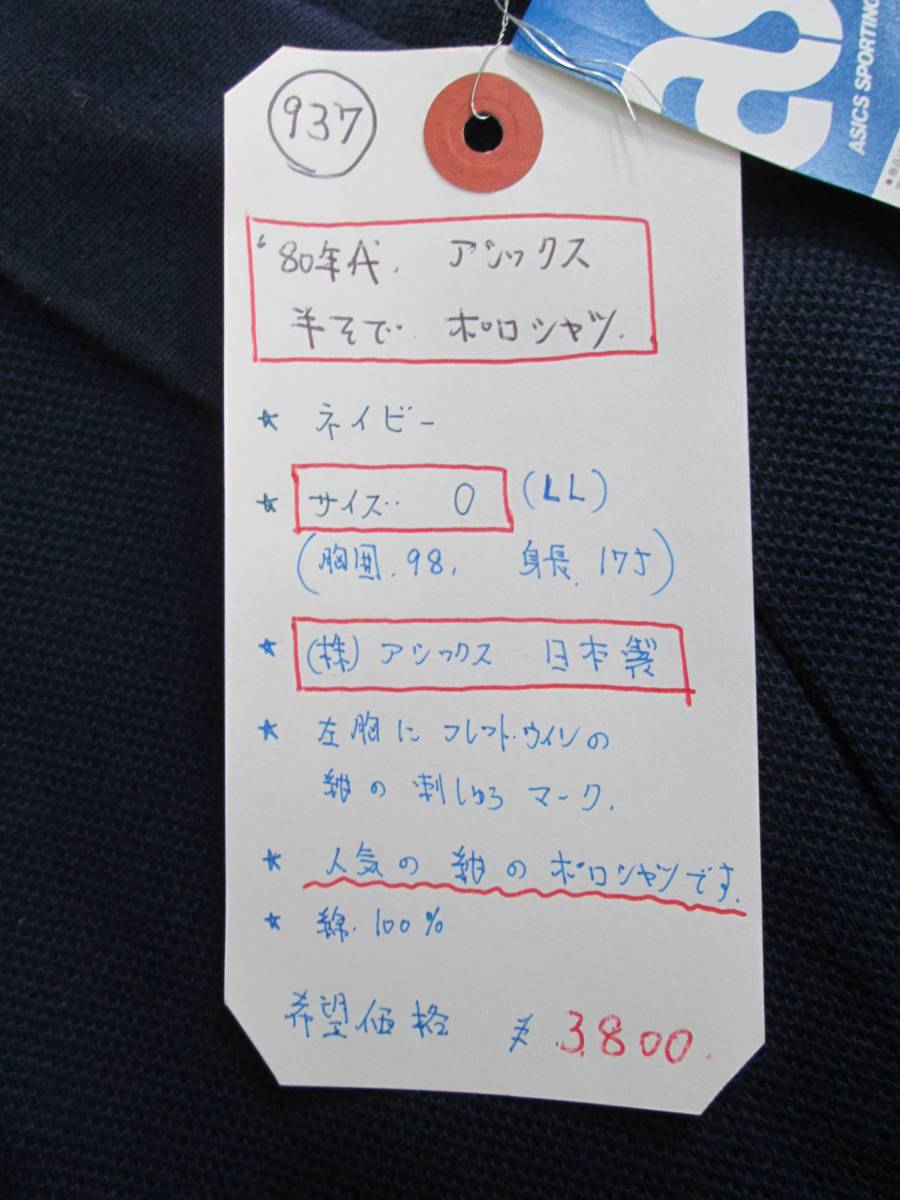 937
'80年代. アシックス
半そで. ポロシャツ.
★ ネイビー
★ サイズ‥ O (LL)
(胸囲. 98. 身長. 175)
★ (株)アシックス 日本製
★ 左胸に フレッド・ウインの
紺の 刺しゅう マーク.
★ 人気の 紺の ポロシャツです.
★ 綿. 100%
希望価格 ¥.3800.
ASICS SPORTING